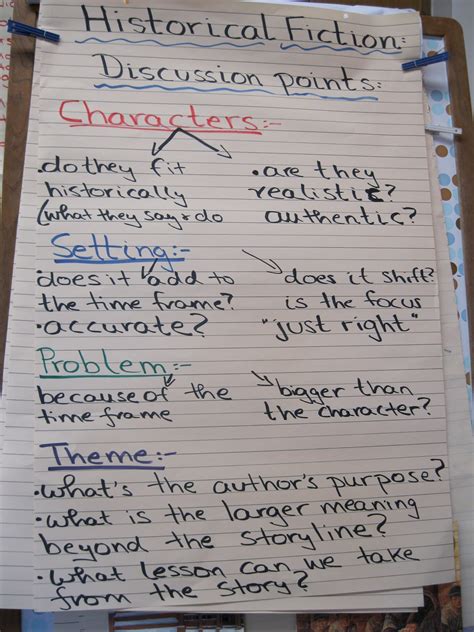 Historical Fiction:
Discussion points:
Characters:-
•do they fit
historically
(what they say & do
•are they
realistic?
authentic?
Setting:-
•does it add to
the time frame?
•accurate?
does it shift?
is the focus
"just right"
Problem:-
because of the
time frame
•bigger than
the character?
Theme:-
•what's the author's purpose?
•what is the larger meaning
beyond the storyline?
•What lesson can we take
from the story?